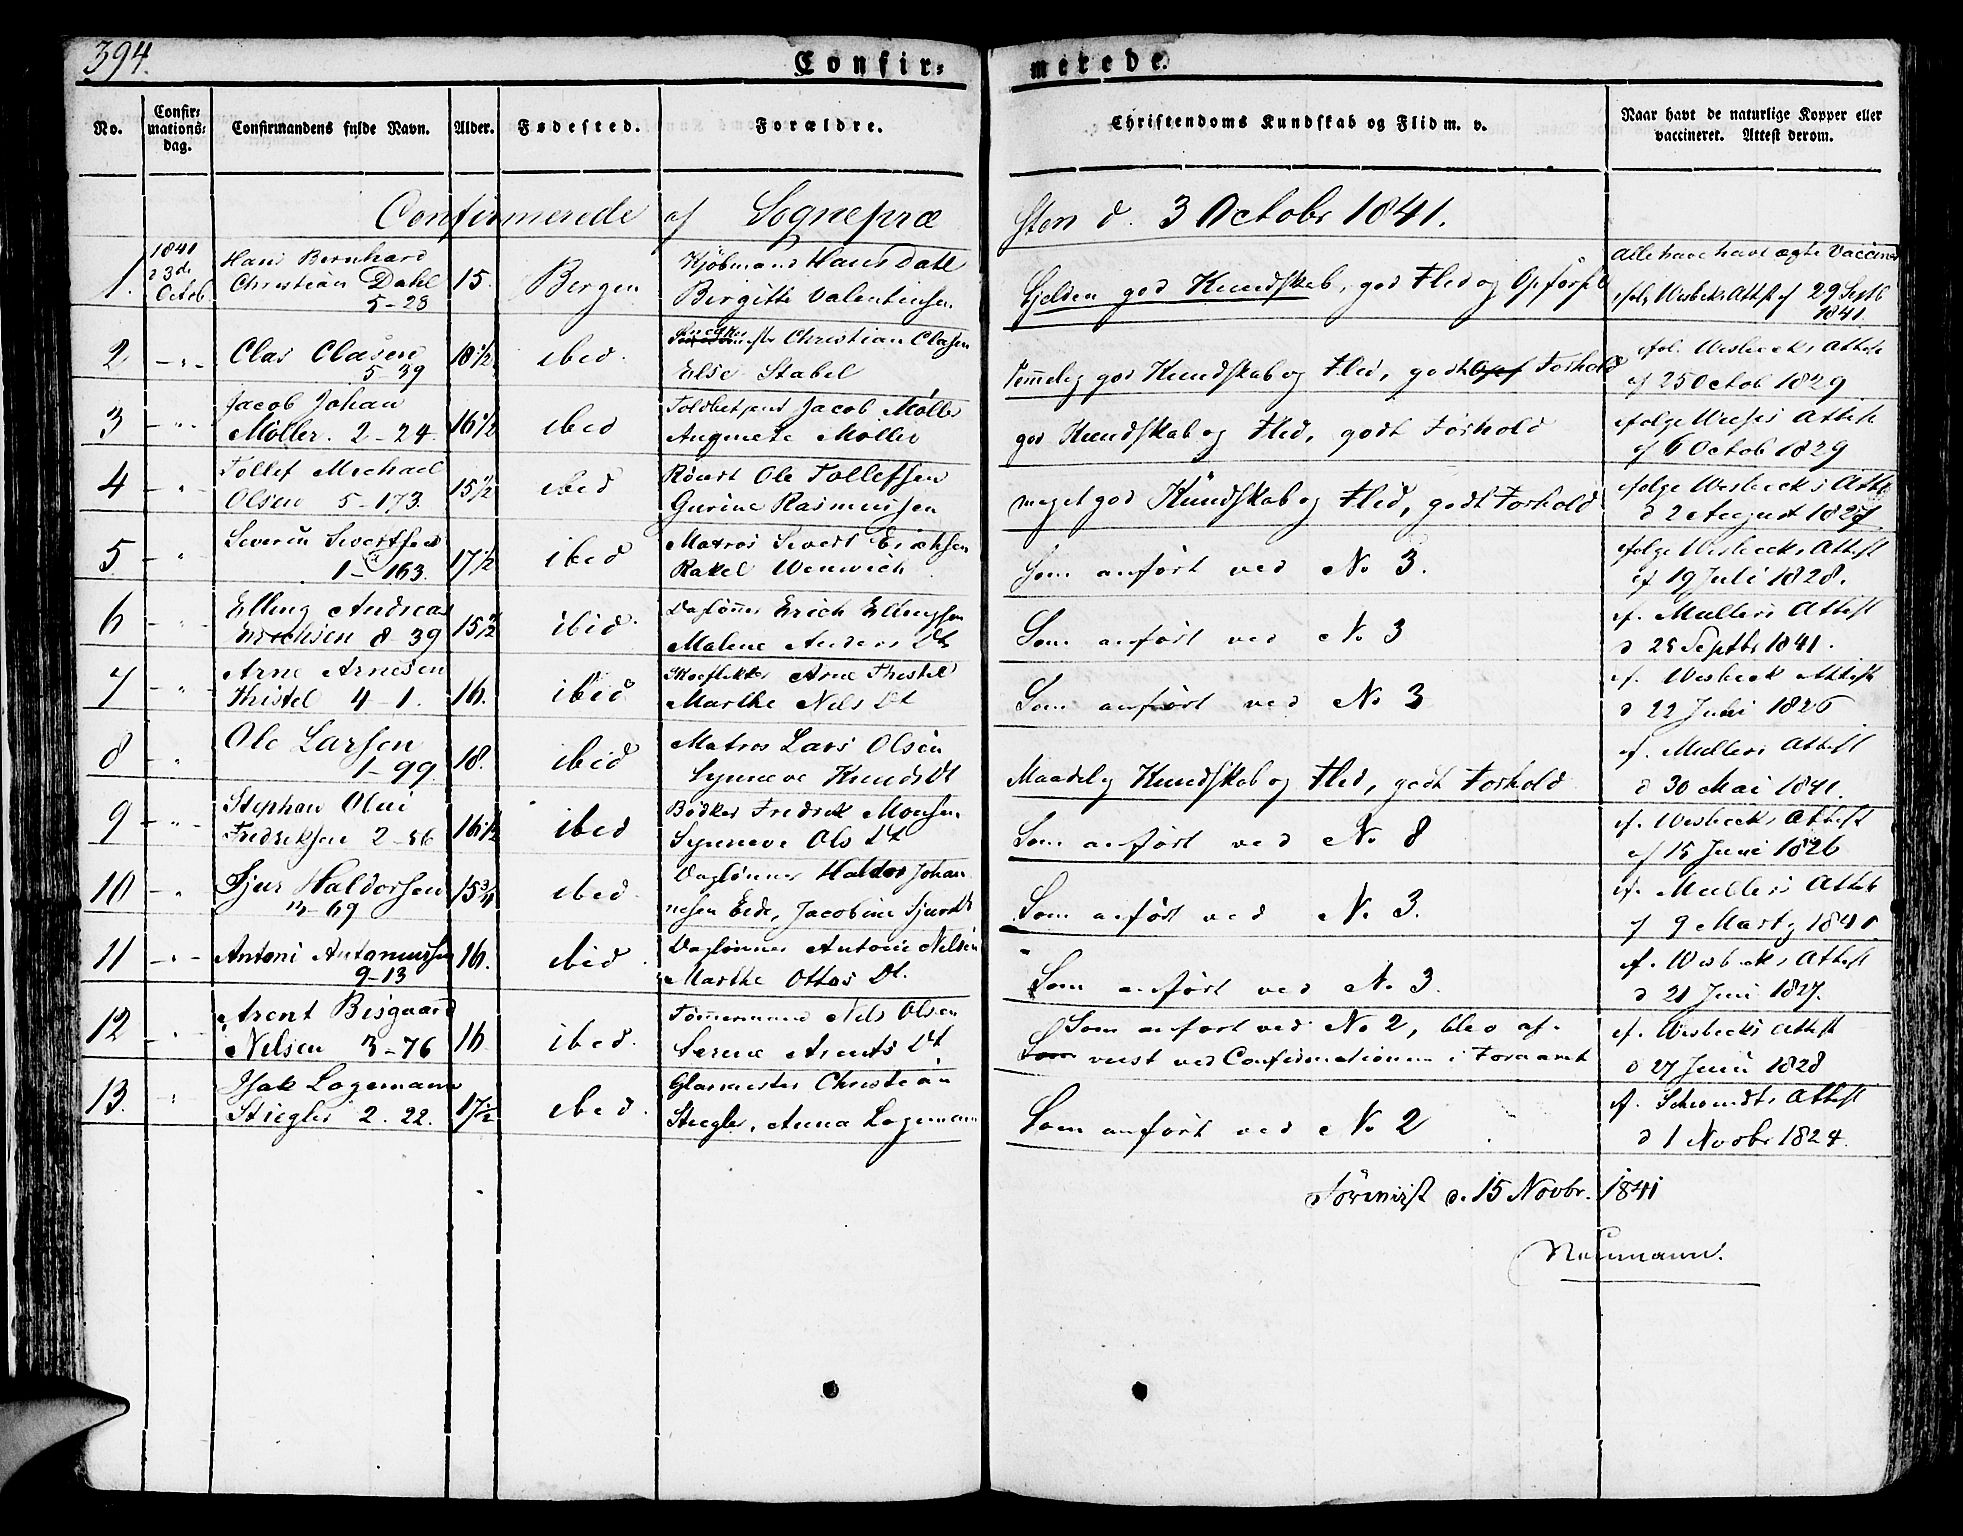 394.
Confir=
merede.
No.
Confir=
mations=
dag.
Confirmandens fulde Navn.
Alder.
Fødested.
Forældre.
Christendoms Kundskab og Flid m. v.
Naar havt de naturlige Kopper eller
vaccineret. Attest derom.
Confirmerede af Sognepræ
sten d. 3 Octobr 1841.
1.
1841
d 3de
Octob
Hans Bernhard
Christian Dahl
5-28
15.
Bergen
Kjøbmand Hans Dahl
Birgitte Valentinsen
Sjelden god Kundskab, god Flid og Opførsel
Alle have havt ægte Vacciner
efolg Wesbecks Attest af 29 Septb
1841
2
Clas Clasen
5-39
18 1/2
ibid.
Christian Clasen
Else Stabel
Temmelig god Kundskab og Flid, godt Forhold
efol. Wesbecks Attest
af 25 Octob 1829
3
Jacob Johan
Møller. 2-24
16 1/2
ibid
Jacob Møller
Møller
god Kundskab og Flid, godt Forhold
efolge Attest
af 6 Octob 1829
4
Tollef Michael
Olsen 5-173.
15 1/2
ibid
Ole Tollefsen
Gurine Rasmussen
meget god Kundskab og Flid, godt Forhold
efolge Wesbecks Attest
d 2 August 1827
5
Severin Sivertsen
1-163.
17 1/2
ibid
Matros Sivert Erichsen
Rakel Wenwich
Som anført ved No 3.
efolge Wesbecks Attest
af 19 Juli 1828.
6
Elling Andreas
Erichsen 8-39
15 1/2
ibid.
Daglønner Erich Ellingsen
Malene Anders Dt
Som anført ved No 3
ef. Mullers Attest
d 25 Septbr 1841.
7
Arne Arnesen
Thistel 4-1.
16.
ibid
Skoeflikker Arne Thistel
Marthe Nels Dt
Som anført ved No 3
ef. Wesbeck Attest
d 22 Juli 1826
8
Ole Larsen
1-99
18.
ibid
Matros Lars Olsen
Synneve Knuds Dt
Maadelig Kundskab og Flid, godt Forhold
ef. Mullers Attest
d 30 Mai 1841.
9
Stephan Olai
Fredriksen 2-86
16 1/2
ibid
Bødker Fredrik Monsen
Synneve Ols Dt
Som anført ved No 8
ef. Wesbecks Attest
af 15 Juni 1826
10
Sjur Haldorsen
3-69
15 3/4
ibid.
Daglønner Haldor Johan
nesen Eide, Jacobine Sjurs Dt
Som anført ved No 3.
ef. Mullers Attest
af 9 Marty 1841
11
Antoni Antoniussen
9-13
16.
ibid.
Daglønner Antoni Nilsen
Marthe Ottos Dt.
Som anført ved No 3.
ef. Wesbecks Attest
d 21 Juni 1827.
12
Arent Bisgaard
Nelsen 3-76
16
ibid.
Tømmermand Nels Olsen
Serene Arents Dt
Som anført ved No 2, blev af-
viist ved Confirmationen i Foraaret
ef. Wesbecks Attest
d 27 Juni 1828
13.
Isak Logemann
Stiegler 2.22.
17 1/2
ibid.
Glarmester Christian
Stiegler, Anna Logemann
Som anført ved No 2
ef. Schwindts Attest
d 1 Novbr 1824.
Foreviist d. 15 Novbr. 1841
Neumann.